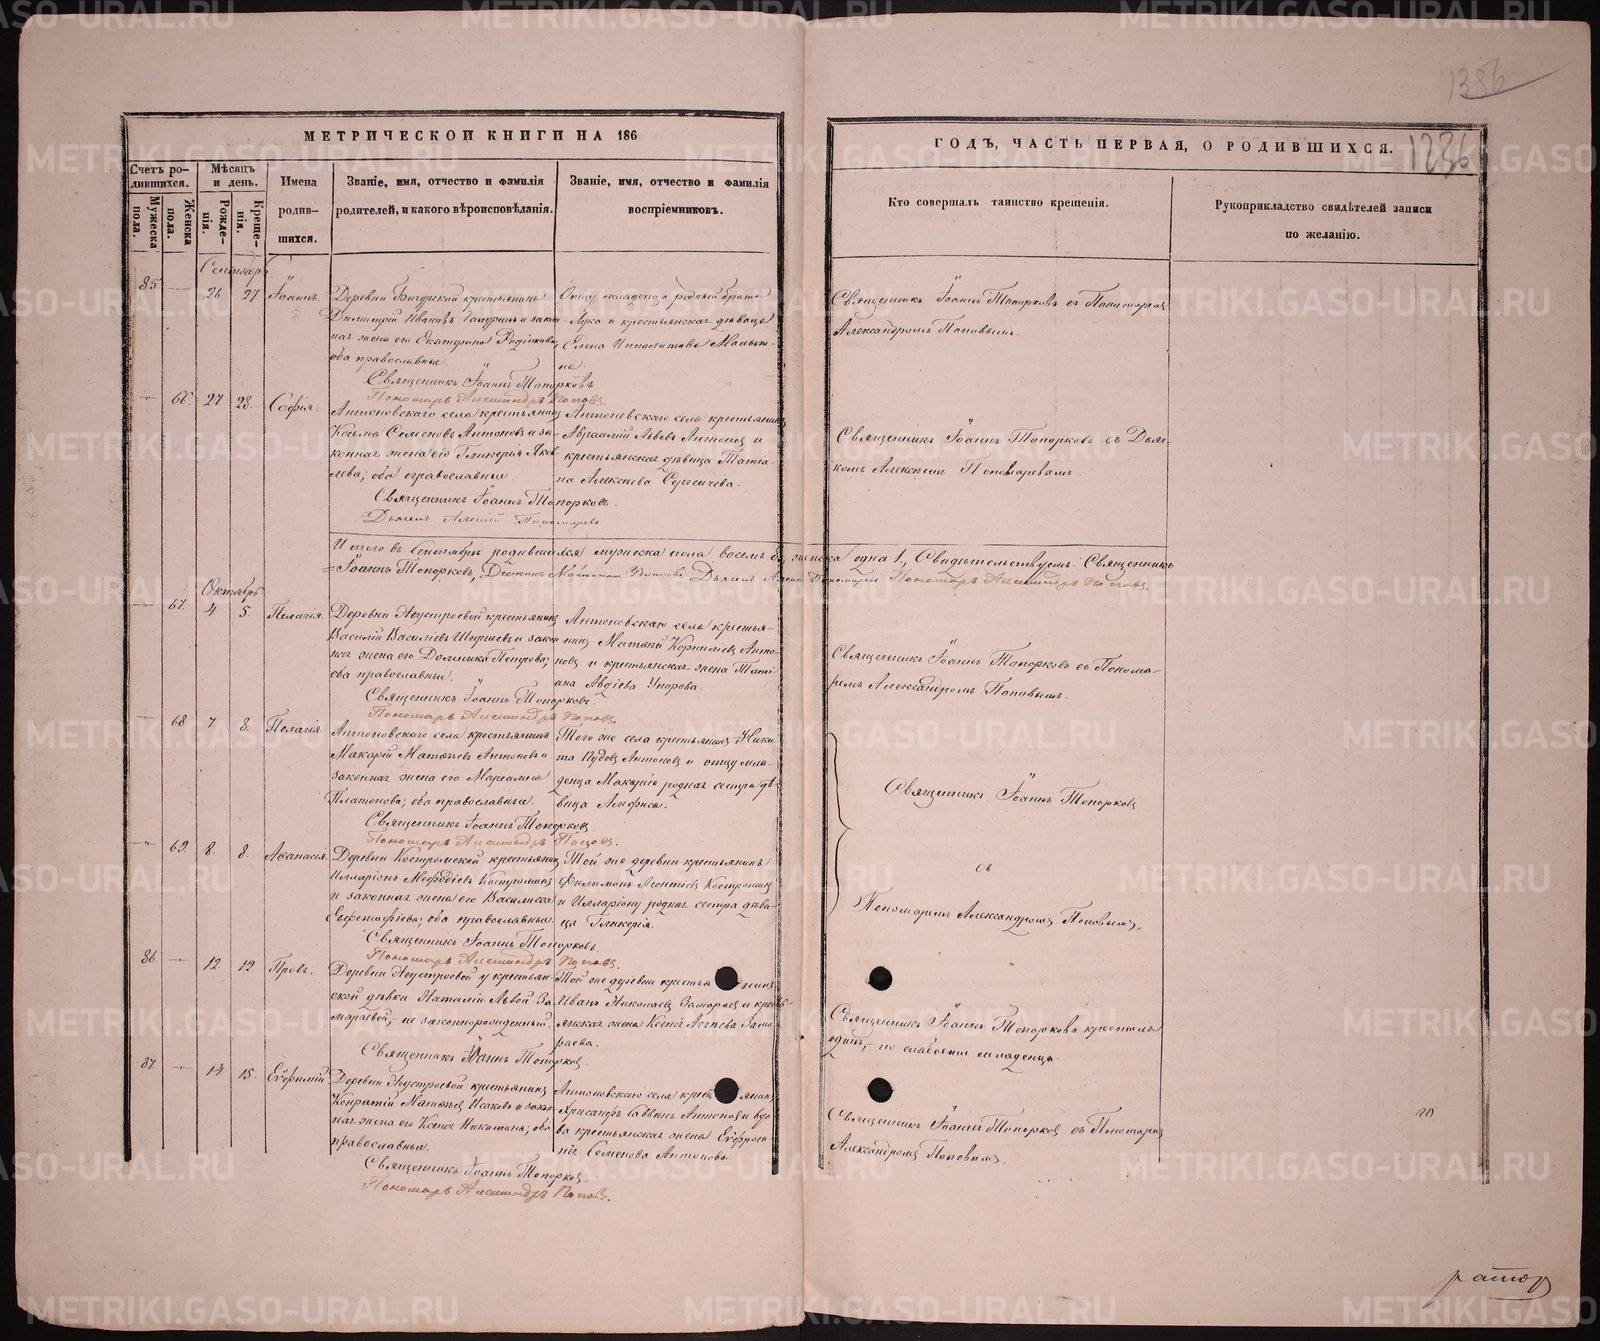 1386
МЕТРИЧЕСКОЙ КНИГИ НА 186
ГОДЪ, ЧАСТЬ ПЕРВАЯ, О РОДИВШИХСЯ.
1236
Счетъ родившихся.
Мужеска пола.
Женска пола.
Мѣсяцъ и день.
Рожденія.
Крещенія.
Имена родившихся.
Званіе, имя, отчество и фамилія родителей, и какого вѣроисповѣданія.
Званіе, имя, отчество и фамилія воспріемниковъ.
Кто совершалъ таинство крещенія.
Рукоприкладство свидѣтелей записи по желанію.
Сентябрь
85 26 27 Іоаннъ.
Деревни крестьянинъ
Димитрій Ивановъ и закон
ная жена его Екатерина
оба православные.
Священникъ Іоаннъ Топорковъ
Пономарь Александръ Поповъ.
Отцу младенца родный братъ
и крестьянская дѣвица
Елена Ипполитова
Священникъ Іоаннъ Топорковъ съ Пономаремъ
Александромъ Поповымъ.
66. 27 28. Софія.
Антоновскаго села крестьянинъ
Косьма Семеновъ Антоновъ и за-
конная жена его Гликерія Яков
лева; оба православные.
Священникъ Іоаннъ Топорковъ.
Дьячекъ Алексій Пономаревъ
Антоновскаго села крестьянинъ
Авраамій Львовъ Антоновъ и
крестьянская дѣвица Татіа-
на Алексѣева Сергеичева.
Священникъ Іоаннъ Топорковъ съ Дьяч-
комъ Алексѣемъ Пономаревымъ.
Итого въ Сентябрѣ родившихся мужеска пола восемь 8, женска одна 1, Свидѣтельствуемъ: Священникъ
Іоаннъ Топорковъ, Діаконъ Дьячекъ Алексѣй Пономаревъ Пономарь Александръ Поповъ.
Октябрь
67. 4 5. Пелагія.
Деревни Неустроевой крестьянинъ
Василій Василіевъ и закон
ная жена его Домника Петрова;
оба православные.
Священникъ Іоаннъ Топорковъ.
Пономарь Александръ Поповъ.
Антоновскаго села крестья-
нинъ Матѳей Корниліевъ Анто-
новъ и крестьянская жена Тати
ана Авдіева Упорова.
Священникъ Іоаннъ Топорковъ съ Понома-
ремъ Александромъ Поповымъ.
68 7 8. Пелагія.
Антоновскаго села крестьянинъ
Макарій Матѳеевъ Антоновъ и
законная жена его
Платонова; оба православные.
Священникъ Іоаннъ Топорковъ.
Пономарь Александръ Поповъ.
Того же села крестьянинъ Ники-
та Пудовъ Антоновъ и отцу мла-
денца Макарію родная сестра дѣ-
вица Агафія.
Священникъ Іоаннъ Топорковъ
съ
Пономаремъ Александромъ Поповымъ.
69. 8. 8. Аѳанасія.
Деревни Костромской крестьянинъ
Илларіонъ Меѳодіевъ Костроминъ
и законная жена его Василиса
оба православные.
Священникъ Іоаннъ Топорковъ.
Пономарь Александръ Поповъ.
Той же деревни крестьянинъ
Филимонъ Леонтіевъ Костроминъ
и Илларіону родная сестра дѣви-
ца Гликерія.
86. 12 12 Провъ.
Деревни Неустроевой у крестьян-
ской дѣвки Наталіи Львой За-
мараевой,- не законнорожденный.
Священникъ Іоаннъ Топорковъ.
Той же деревни крестьянинъ
Иванъ Николаевъ Замараевъ и кресть-
янская жена Ксенія Замa-
раева.
Священникъ Іоаннъ Топорковъ крестилъ
одинъ,- по слабости младенца.
87. 14 15. Евфимій
Деревни Неустроевой крестьянинъ
Матѳеевъ Исаковъ и закон
ная жена его Ксенія Никитина; оба
православные.
Священникъ Іоаннъ Топорковъ.
Пономарь Александръ Поповъ.
Антоновскаго села крестьянинъ
Хрисанфъ Саввинъ Антоновъ и вдо-
ва крестьянская жена Евфроси-
нія Семенова Антонова.
Священникъ Іоаннъ Топорковъ съ Пономаремъ
Александромъ Поповымъ.
METRIKI.GASO-URAL.RU